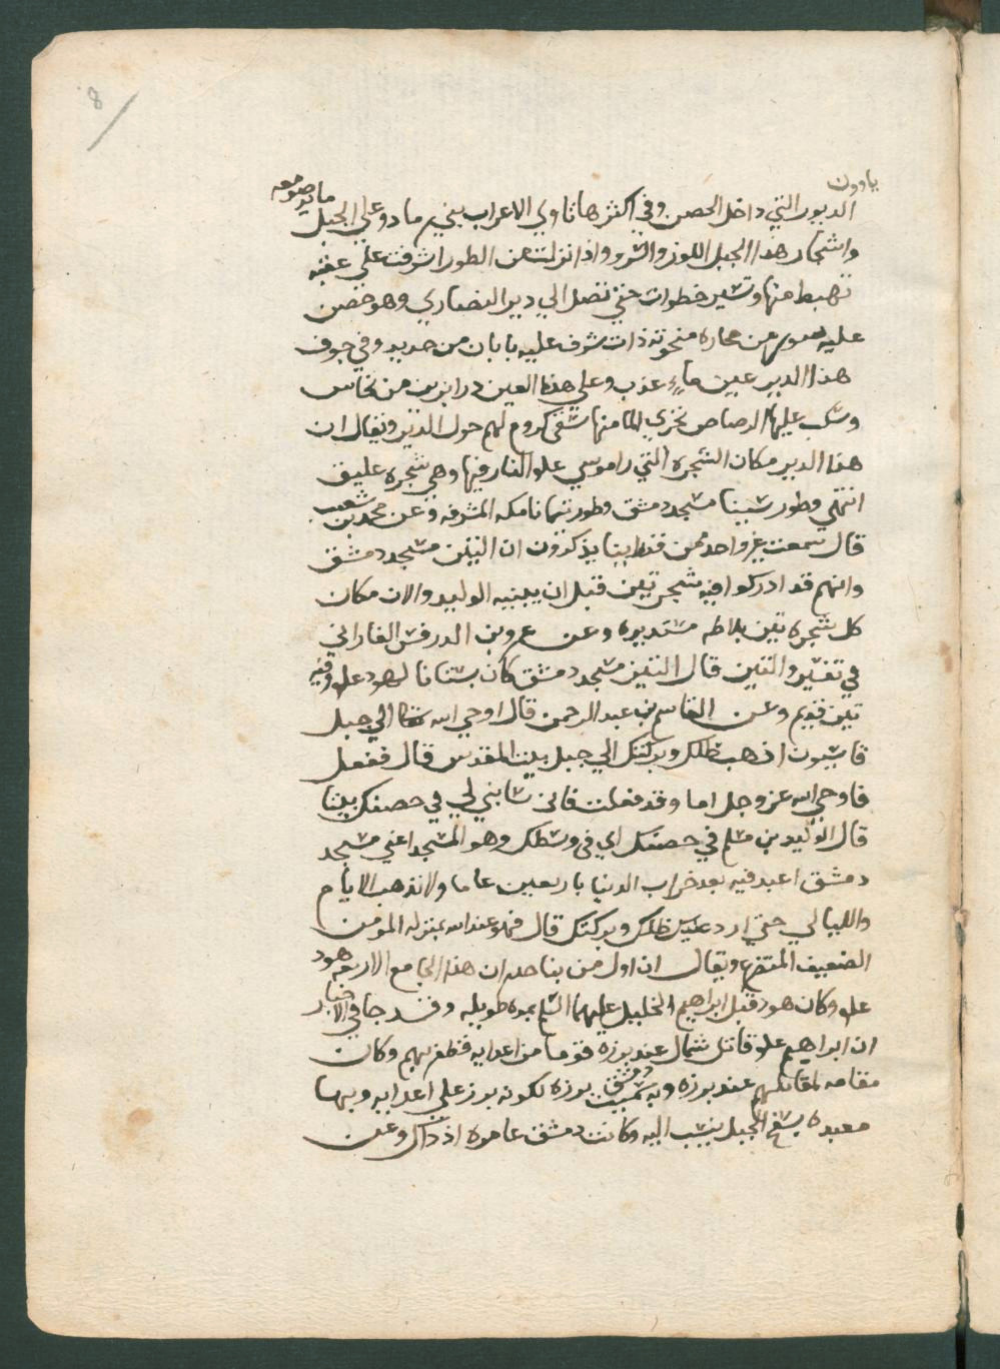 8
ياوون
الديور التي داخل الحصن وفي اكثرها تاوي الاعراب بخيم ما دو علي الجبل
واشجار هذا الجبل اللوز والسرو واذا نزلت من الطور اشرفت علي عقبه
تهبط منها وتسير خطوات حتي تصل الي دير النصاري وهو حصن
عليه سور من حجاره منحوته ذات شرف عليه بابان من حديد وفي جوف
هذا الدير عين ماء عذب وعلي هذا العين درابزين من نحاس
عليها الرصاص تجري الما منها تسقي كروم لهم حول الدير ويقال ان
هذا الدير مكان الشجره التي راموسي علم النار فيها وهي شجره عليق
انتهي وطور سينا مسجد دمشق وطور تيمانا مكه المشرفه وعن محمد بن شعيب
قال سمعت غير واحد من قدماينا يذكرون ان التين مسجد دمشق
وانهم قد ادركوا فيه شجر تين قبل ان يبنيه الوليد والان مكان
كل شجره تين بلاطه مستديره وعن عمرو بن الدرفس الغاراني
في تفسير والتين قال التين مسجد دمشق كان بستانا لهود علم وفيه
تين قديم وعن القاسم بن عبد الرحمن قال اوحي الله تعا الي جبل
قاسيون اذهب ظلك وبركتك الي جبل بيت المقدس قال ففعل
فاوحي الله عز وجل اما وقد فعلت فاني سابني لي في حصنك بيتا
قال الوليد بن مسلم في حصنك اي في وسطك وهو المسجد اعني مسجد
دمشق اعبد فيه بعد خراب الدنيا باربعين عاما ولا تذهب الايام
والليالي حتي ارد عليك ظلك وبركتك قال فهو عند الله بمنزله المومن
الضعيف المتضرع ويقال ان اول من بنا جدران هذا الجامع الاربعه هود
علم وكان هود قبل ابراهيم الخليل عليهما السلم بمده طويله وقد جا في الاخبار
ان ابراهيم علم قاتل شمال عند برزه قوما من اعدايه فظفر بهم وكان
مقامه لمقاتلهم عند برزه وبه سميت برزه لكونه برز علي اعدايه وبها
معبده بسفح الجبل ينسب اليه وكانت دمشق عامره اذ ذاك وعن